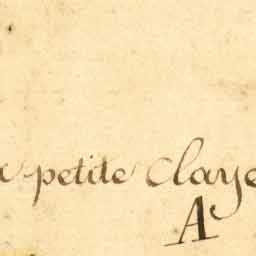 petite Claye
A